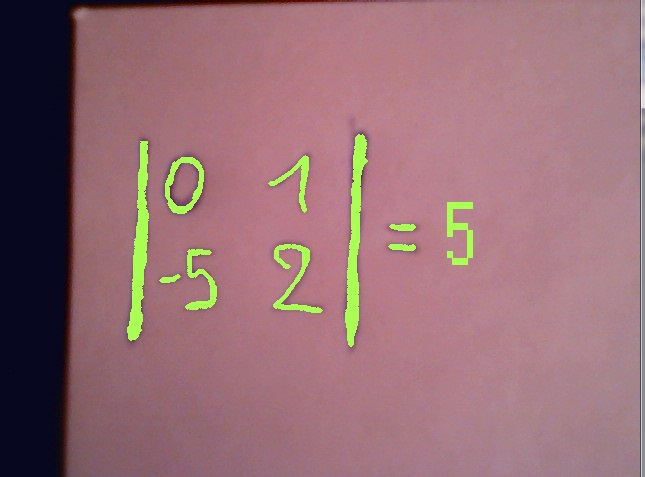 | 0 1 |
| -5 2 | = 5